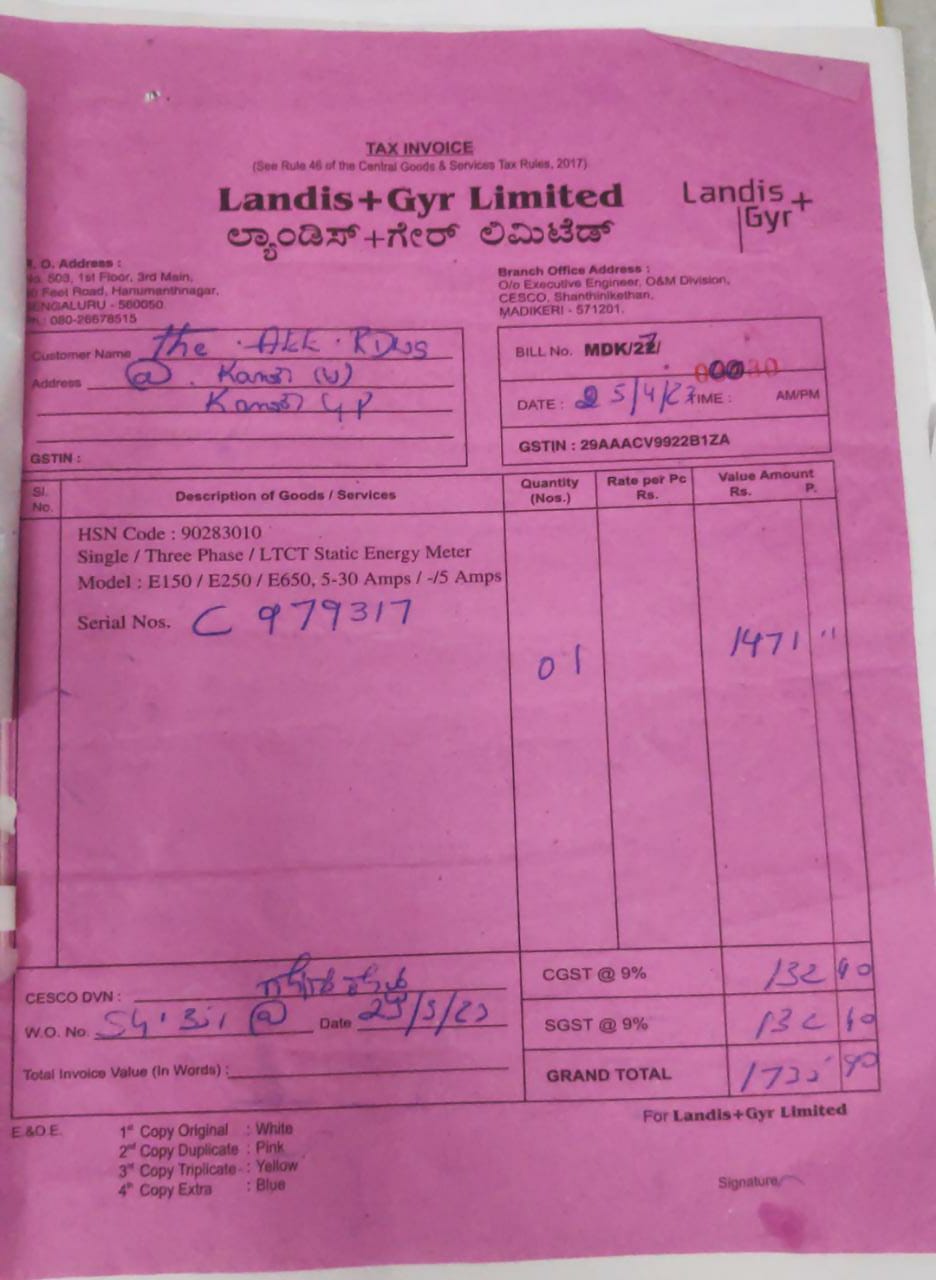 TAX INVOICE
(See Rule 46 of the Central Goods & Services Tax Rules, 2017)
Landis+Gyr Limited
ಲ್ಯಾಂಡಿಸ್+ಗೇರ್ ಲಿಮಿಟೆಡ್
Landis
Gyr+
R. O. Address :
No. 503, 1st Floor, 3rd Main,
Feet Road, Hanumanthnagar,
BENGALURU - 560050.
Ph.: 080-26678515
Branch Office Address :
O/o Executive Engineer, O&M Division,
CESCO, Shanthinikethan,
MADIKERI - 571201.
Customer Name the
Address @
GSTIN :
BILL No. MDK/22/
DATE : 25/4/23 TIME : AM/PM
GSTIN : 29AAACV9922B1ZA
Sl. No. Description of Goods / Services Quantity (Nos.) Rate per Pc Rs. Value Amount Rs. P.
HSN Code : 90283010
Single / Three Phase / LTCT Static Energy Meter
Model : E150 / E250 / E650, 5-30 Amps / -/5 Amps
Serial Nos. C 979317
01 1471 "
CESCO DVN :
CGST @ 9% 132
W.O. No. Date
SGST @ 9% 132
Total Invoice Value (In Words) :
GRAND TOTAL
For Landis+Gyr Limited
E.&O.E.
1st Copy Original : White
2nd Copy Duplicate : Pink
3rd Copy Triplicate : Yellow
4th Copy Extra : Blue
Signature